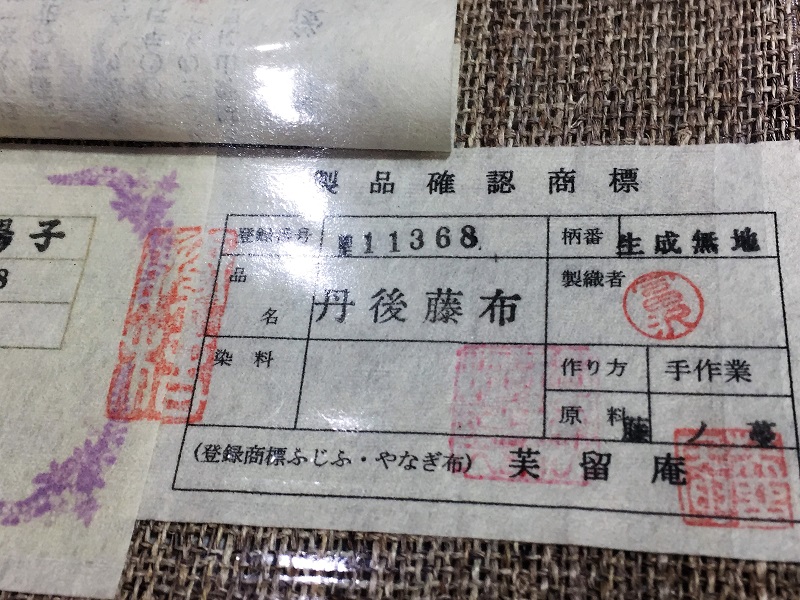 製品確認商標
登録番号 11368 柄番 生成無地
品名 丹後藤布 製織者
染料 作り方 手作業
原料 藤ノ蔓
(登録商標ふじふ・やなぎ布) 芙留庵
陽子
8